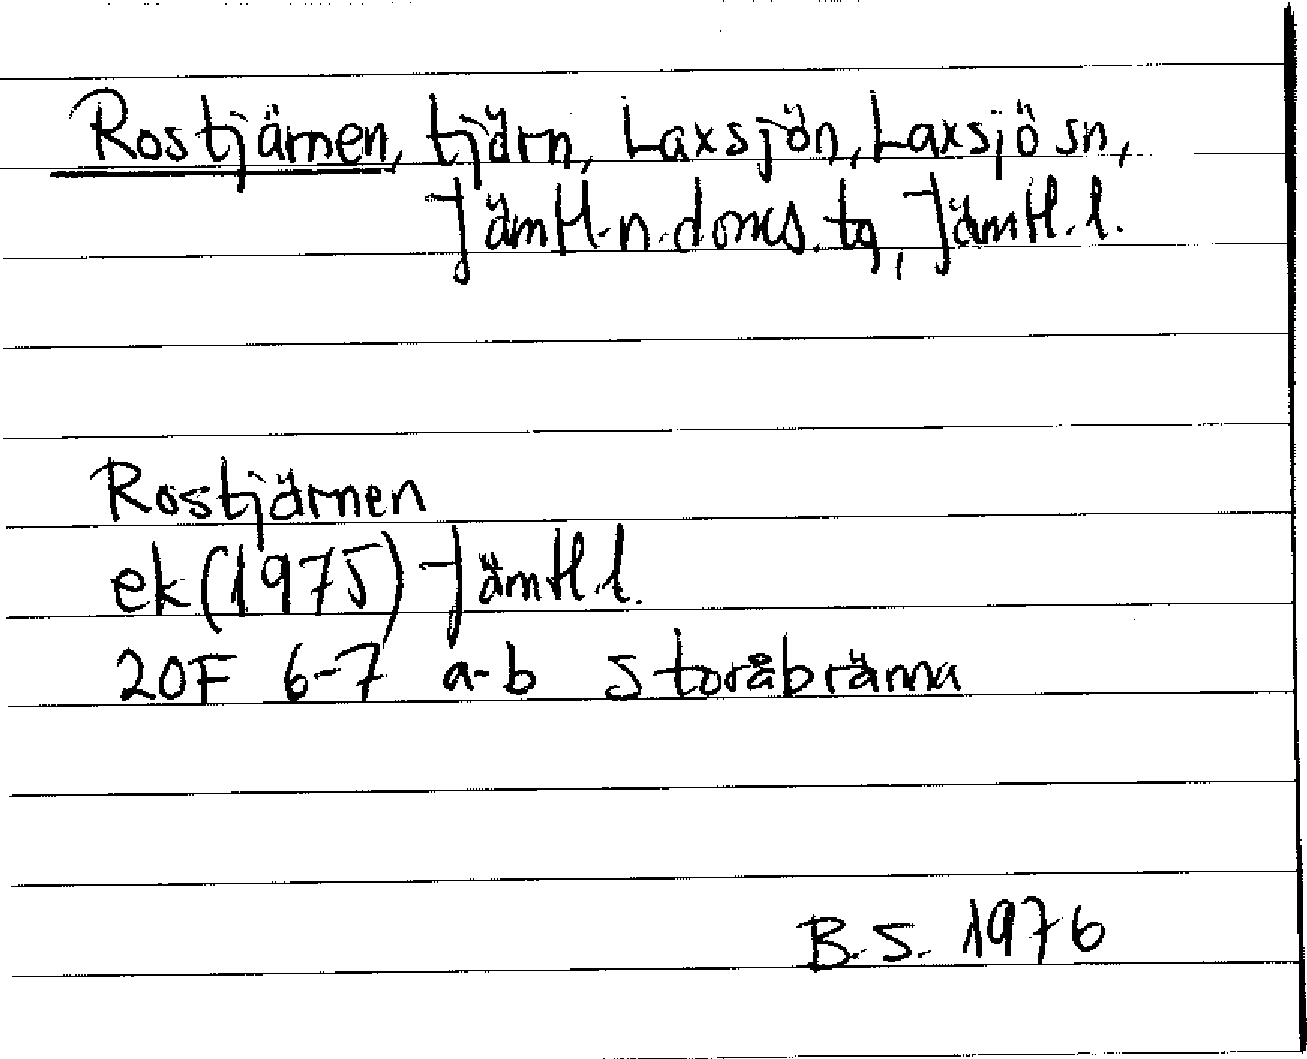 Rostjärnen, tjärn, Laxsjön, Laxsjö sn,
Jämtl. n. doms. tg, Jämtl. l.
Rostjärnen
ek (1975) Jämtl. l.
20F 6-7 a-b Storåbränna
B.S. 1976